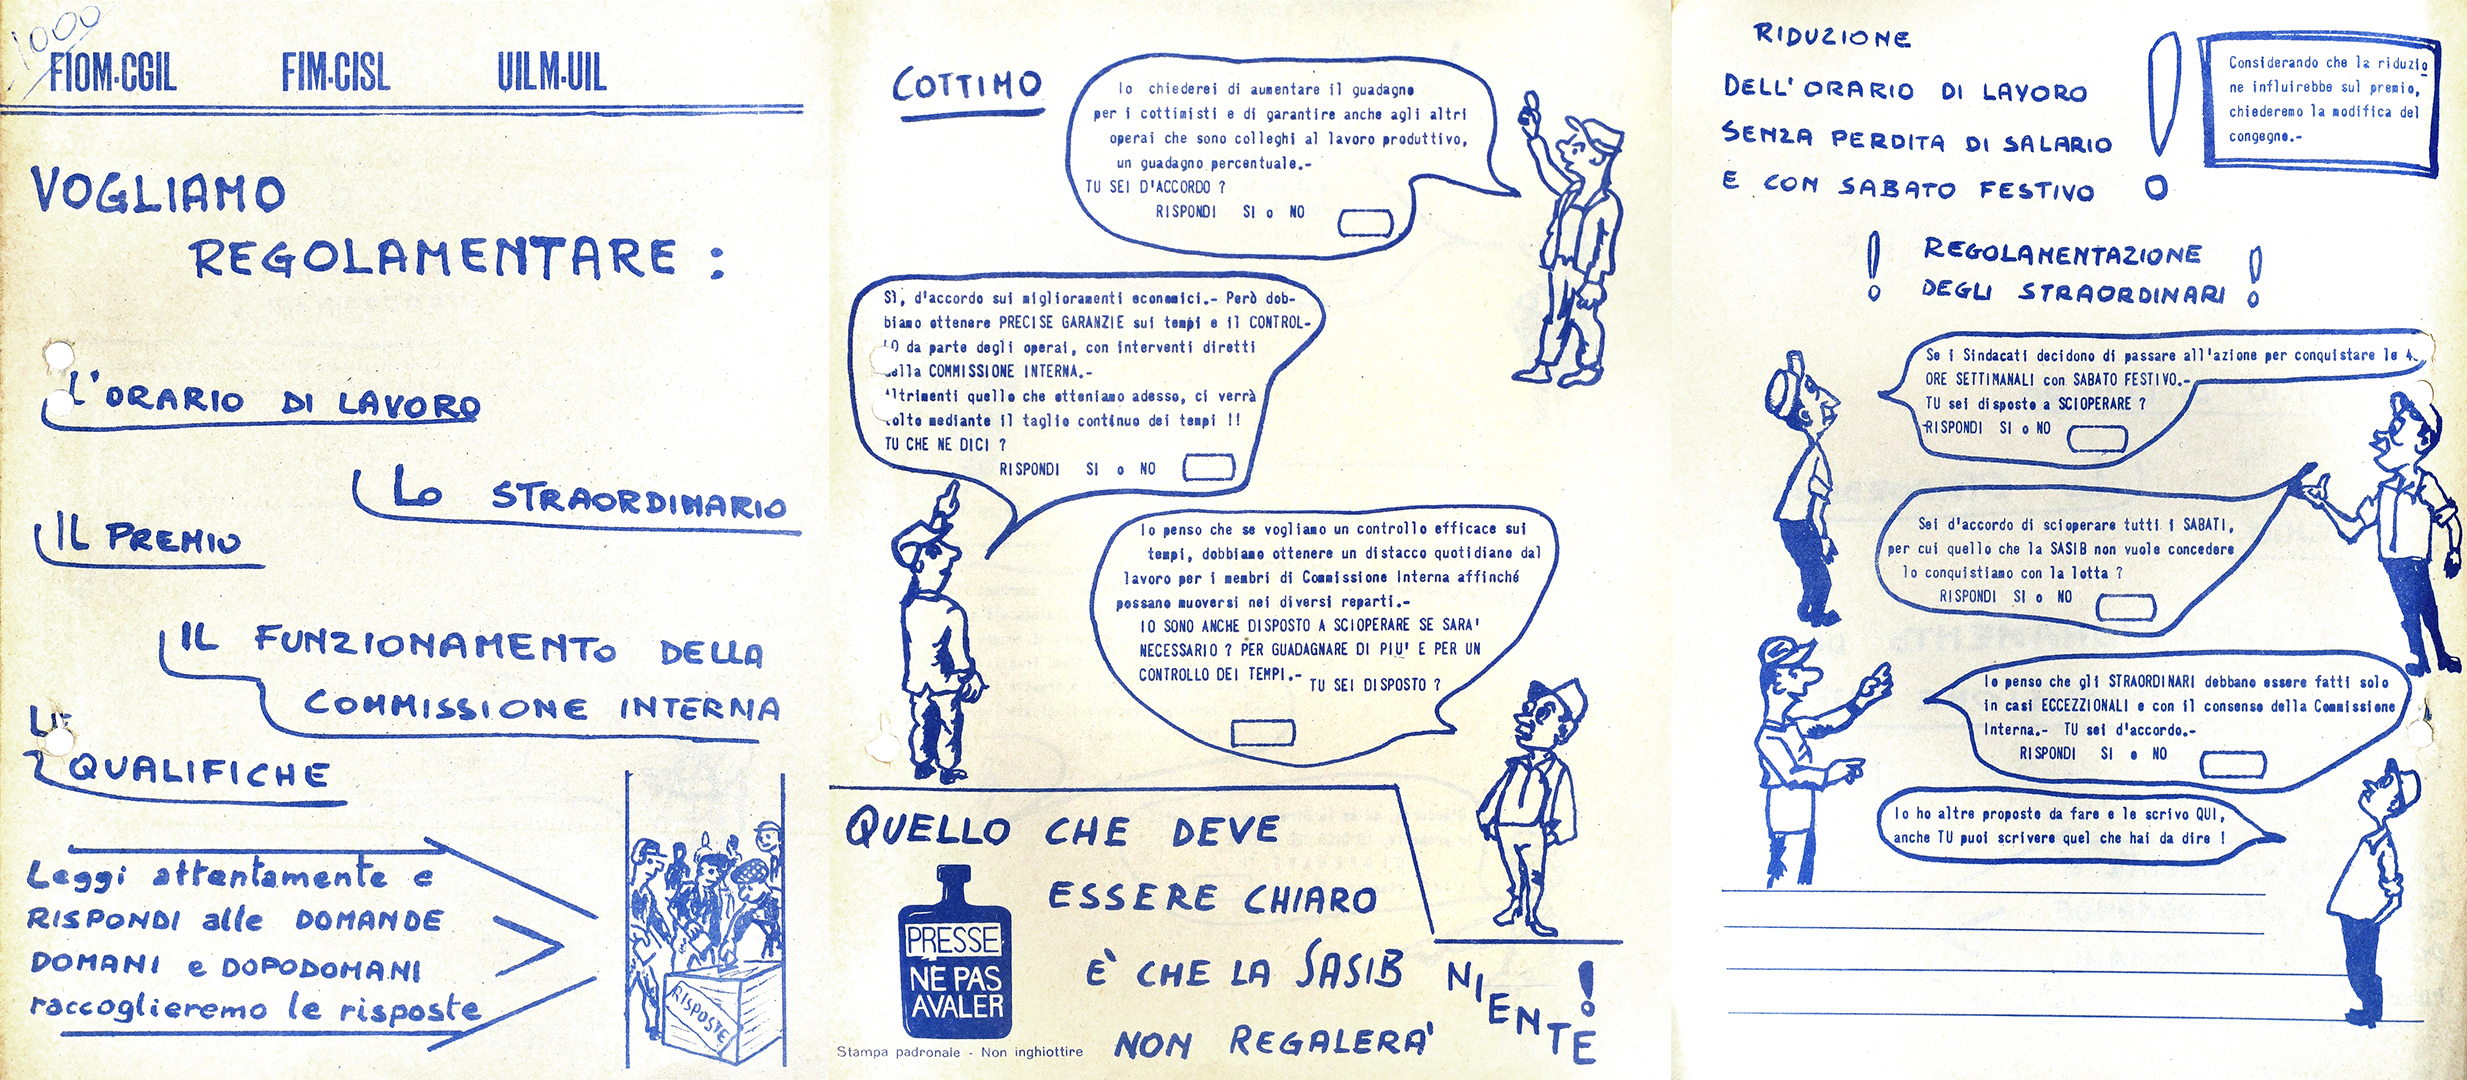 1000
FIOM-CGIL FIM-CISL UILM-UIL
VOGLIAMO
REGOLAMENTARE :
L'ORARIO DI LAVORO
LO STRAORDINARIO
IL PREMIO
IL FUNZIONAMENTO DELLA
COMMISSIONE INTERNA
LE
QUALIFICHE
Leggi attentamente e
RISPONDI alle DOMANDE
DOMANI e DOPODOMANI
raccoglieremo le risposte
RISPOSTE
COTTIMO
Io chiederei di aumentare il guadagno
per i cottimisti e di garantire anche agli altri
operai che sono colleghi al lavoro produttivo,
un guadagno percentuale.-
TU SEI D'ACCORDO ?
RISPONDI SI o NO
Sì, d'accordo sui miglioramenti economici.- Però dob-
biamo ottenere PRECISE GARANZIE sui tempi e il CONTROL-
LO da parte degli operai, con interventi diretti
della COMMISSIONE INTERNA.-
Altrimenti quello che otteniamo adesso, ci verrà
tolto mediante il taglio continuo dei tempi !!
TU CHE NE DICI ?
RISPONDI SI o NO
Io penso che se vogliamo un controllo efficace sui
tempi, dobbiamo ottenere un distacco quotidiano dal
lavoro per i membri di Commissione Interna affinché
possano muoversi nei diversi reparti.-
IO SONO ANCHE DISPOSTO A SCIOPERARE SE SARA'
NECESSARIO ? PER GUADAGNARE DI PIU' E PER UN
CONTROLLO DEI TEMPI.-
TU SEI DISPOSTO ?
QUELLO CHE DEVE
ESSERE CHIARO
È CHE LA SASIB
NON REGALERA'
NIENTE !
PRESSE
NE PAS
AVALER
Stampa padronale - Non inghiottire
RIDUZIONE
DELL'ORARIO DI LAVORO
SENZA PERDITA DI SALARIO
E CON SABATO FESTIVO !
Considerando che la riduzio
ne influirebbe sul premio,
chiederemo la modifica del
congegno.-
! REGOLAMENTAZIONE
DEGLI STRAORDINARI !
Se i Sindacati decidono di passare all'azione per conquistare le
ORE SETTIMANALI con SABATO FESTIVO.-
TU sei disposto a SCIOPERARE ?
RISPONDI SI o NO
Sei d'accordo di scioperare tutti i SABATI,
per cui quello che la SASIB non vuole concedere
lo conquistiamo con la lotta ?
RISPONDI SI o NO
Io penso che gli STRAORDINARI debbano essere fatti solo
in casi ECCEZZIONALI e con il consenso della Commissione
Interna.- TU sei d'accordo.-
RISPONDI SI o NO
Io ho altre proposte da fare e le scrivo QUI,
anche TU puoi scrivere quel che hai da dire !